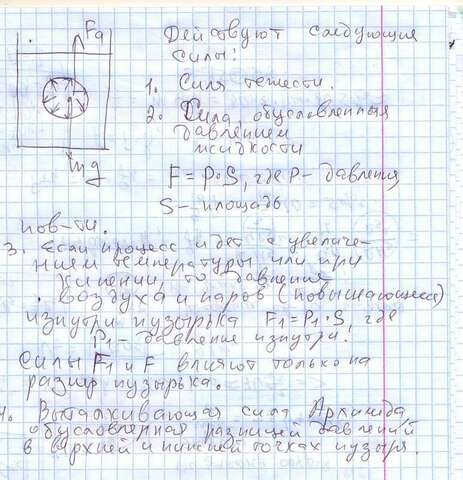 Fа
mg
Действуют следующие
силы:
1. Сила тяжести.
2. Сила, обусловленная
давлением
жидкости
F = P·S, где P - давления
S - площадь
пов-ти.
3. Если процесс идет с увеличе-
нием температуры или при
кипении, то давление
воздуха и паров (повышающееся)
изнутри пузырька F1 = P1·S, где
P1 - давление изнутри.
Силы F1 и F влияют только на
размер пузырька.
4. Выталкивающая сила Архимеда,
обусловленная разницей давлений
в верхней и нижней точках пузыря.